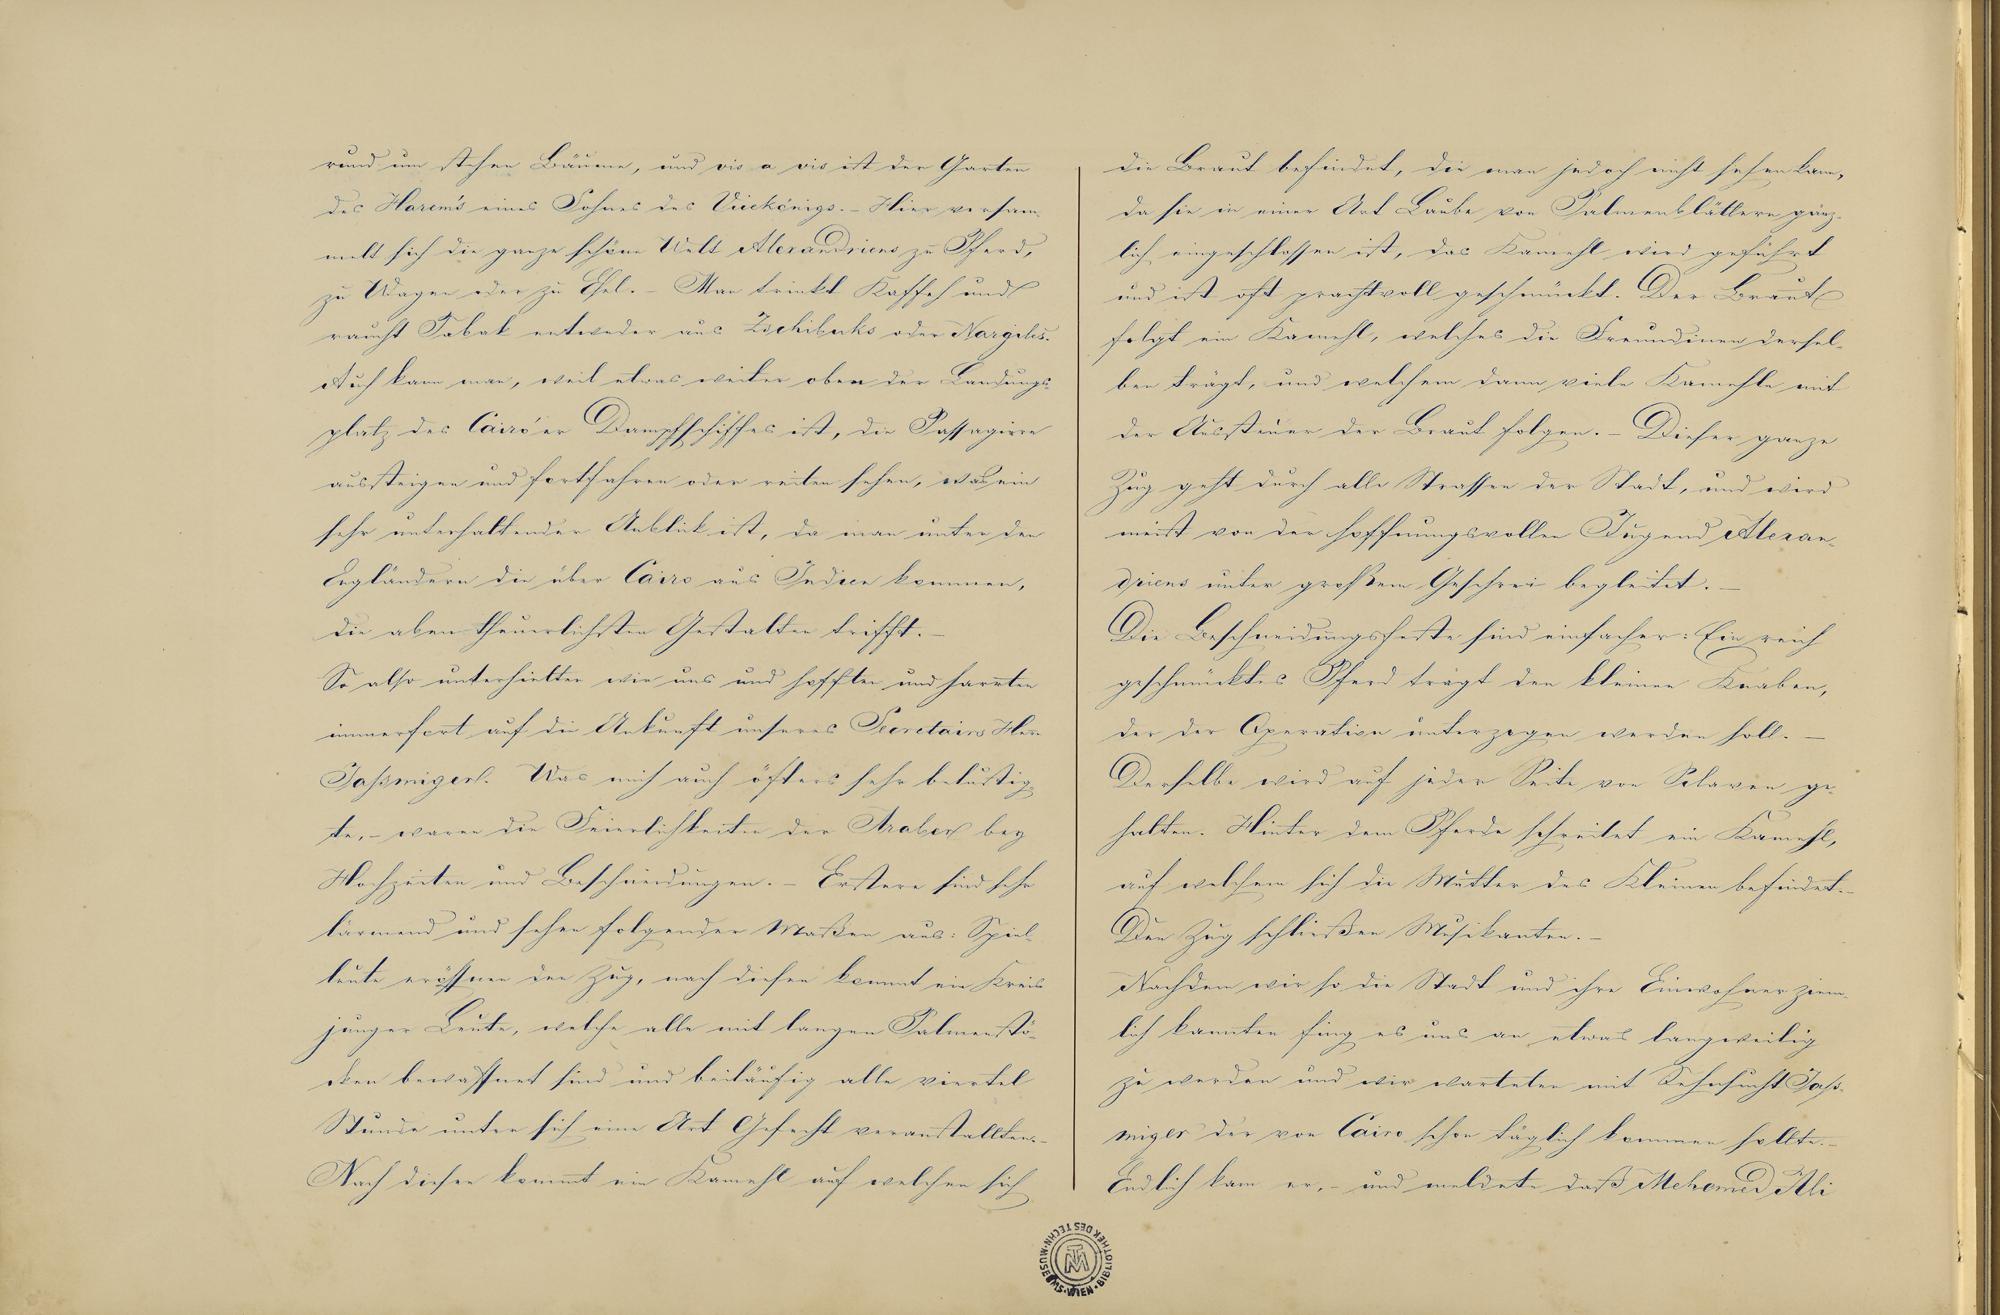 rund um stehen Bäume, und vis a vis ist der Garten
des Harem's eines Sohnes des Vicekönigs. – Hier versam-
melt sich die ganze schöne Welt Alexandriens zu Pferd,
zu Wagen oder zu Esel. – Man trinkt Kaffeh und
raucht Tabak entweder aus Zschibuks oder Nargiles.
Auch kann man, weil etwas weiter oben der Landungs-
platz des Cairo'er Dampfschiffes ist, die Passagiere
aussteigen und fortfahren oder reiten sehen, was ein
sehr unterhaltender Anblick ist, da man unter den
Engländern die über Cairo aus Indien kommen,
die abentheuerlichsten Gestalten trifft. –
So also unterhielten wir uns und hofften und harrten
immerfort auf die Ankunft unseres Secretairs Herr
Jaßmiger. Was mich auch öfters sehr belustig-
te, – waren die Feierlichkeiten der Araber bey
Hochzeiten und Beschneidungen. – Erstere sind sehr
lärmend und sehen folgender Maßen aus: Spiel-
leute eröffnen den Zug, nach diesen kommt ein Kreis
junger Leute, welche alle mit langen Palmenstö-
cken bewaffnet sind und beiläufig alle viertel
Stunde unter sich eine Art Gefecht veranstallten. –
Nach diesen kommt ein Kamehl auf welchen sich
die Braut befindet, die man jedoch nicht sehen kann,
da sie in einer Art Laube von Palmenblättern gänz-
lich eingeschlossen ist, das Kamehl wird geführt
und ist oft prachtvoll geschmückt. Der Braut
folgt ein Kamehl, welches die Freundinen dersel-
ben trägt, und welchem dann viele Kamehle mit
der Aussteuer der Braut folgen. – Dieser ganze
Zug geht durch alle Strassen der Stadt, und wird
meist von der hoffnungsvollen Jugend Alexan-
driens unter großem Geschrei begleitet. –
Die Beschneidungsfeste sind einfacher: Ein reich
geschmücktes Pferd trägt den kleinen Knaben,
der der Operation unterzogen werden soll. –
Derselbe wird auf jeder Seite von Sclaven ge-
halten. Hinter dem Pferde schreitet ein Kamehl,
auf welchem sich die Mutter des Kleinen befindet. –
Den Zug schließen Musikanten. –
Nachdem wir so die Stadt und ihre Einwohner ziem-
lich kannten fing es uns an etwas langweilig
zu werden und wir warteten mit Sehnsucht Jaß-
miger der von Cairo schon täglich kommen sollte. –
Endlich kam er, – und meldete daß Mehemed Ali
BIBLIOTHEK DES TECHN. MUSEUMS · WIEN ·
TM